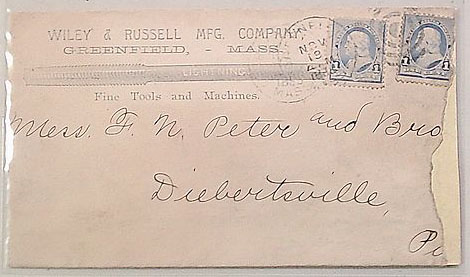 WILEY & RUSSELL MFG. COMPANY,
GREENFIELD, - MASS.
LIGHTNING.
Fine Tools and Machines.
NOV
1
1
1
1
Mess. F. N. Peter and Bro
Diebertsville,